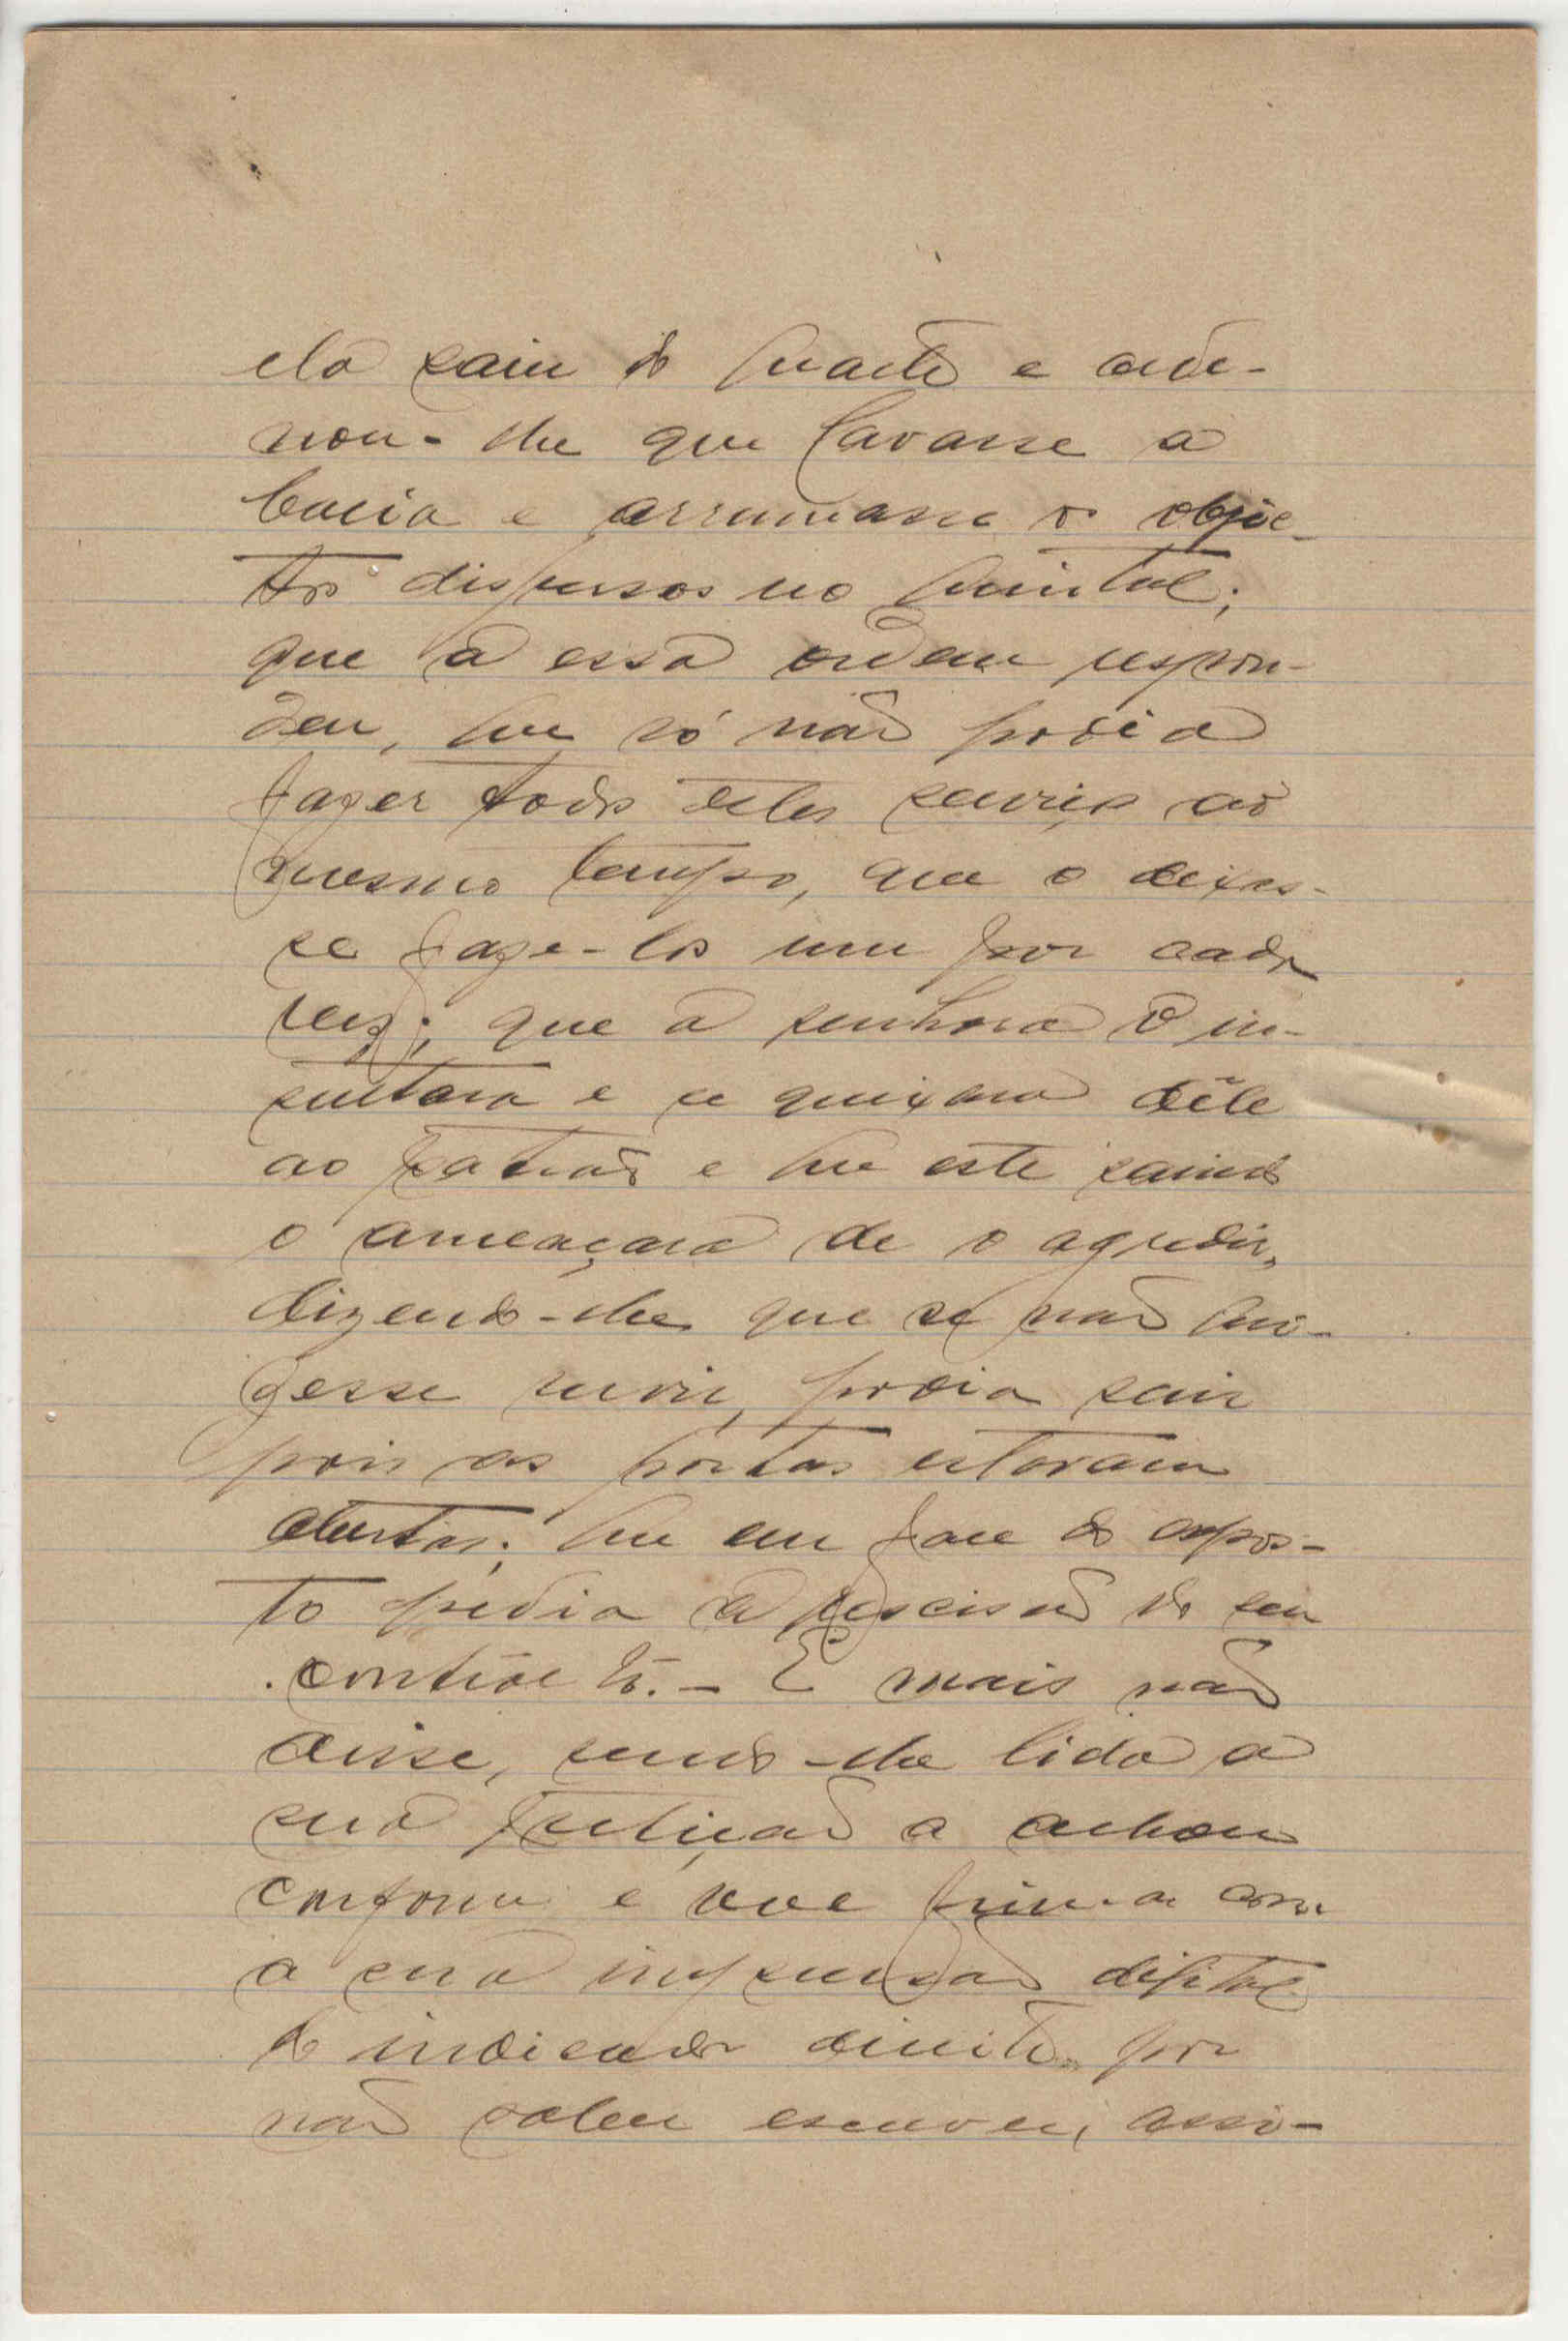 ela saiu do quarto e orde-
nou-lhe que lavasse a
bacia e arrumasse os objec-
tos dispersos no quintal;
que a essa ordem respon-
deu, que só não podia
fazer todos estes serviços ao
mesmo tempo, que o deixas-
se faze-los um por cada
vez; que a senhora o in-
sultara e se queixara dêle
ao patrão e que este saindo
o ameaçara de o agredir,
dizendo-lhe que se não qui-
zesse servir, podia sair
pois as portas estavam
abertas; que em face do expos-
to pedia a rescisão do seu
contracto. - E mais não
disse, sendo-lhe lida a
sua petição a achou
conforme e vae firma-la com
a sua impressão digital
do indicador direito por
não saber escrever, assi-